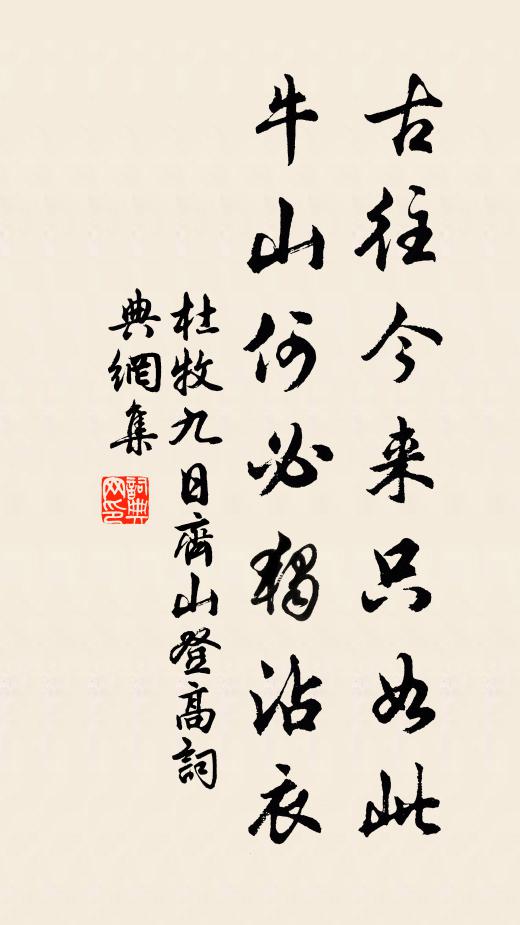 古往今来只如此
牛山何必獨沾衣
杜牧九日齊山登高詞
典網集
詞典网印